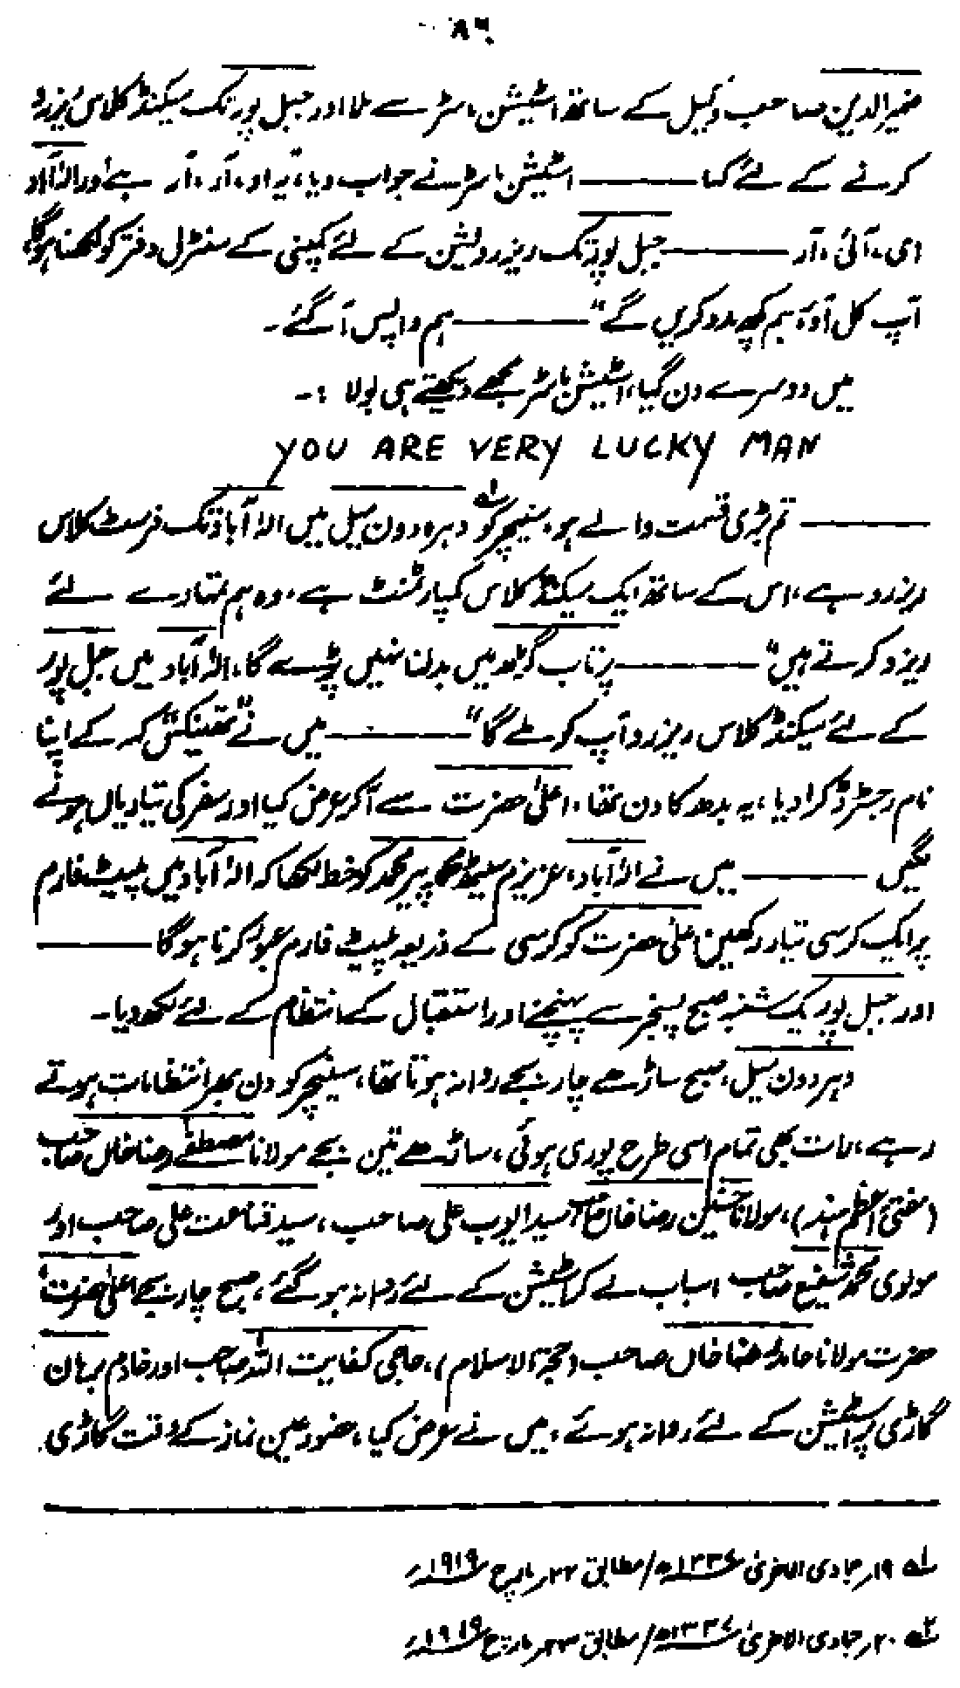 ۸۳
ضیرالدین صاحب وکیل کے ساتھ اسٹیشن ماسٹر سے ملا اور جبل پور تک سیکنڈ کلاس ریزرو
کرنے کے لئے کہا ——— اسٹیشن ماسٹر نے جواب دیا، "یہ او، آر، آر ہے اور الہ آباد
ای، آئی، آر ——— جبل پور تک ریزرویشن کے لئے کمپنی کے سنٹرل دفتر کو لکھنا ہوگا،
آپ کل آؤ، ہم کچھ مدد کریں گے" ——— ہم واپس آگئے۔
میں دوسرے دن گیا، اسٹیشن ماسٹر مجھے دیکھتے ہی بولا :-
YOU ARE VERY LUCKY MAN
——— تم بڑی قسمت والے ہو، سنیچر کو لہ دہرہ دون میل میں الہ آباد تک فرسٹ کلاس
ریزرو ہے، اس کے ساتھ ایک سیکنڈ کلاس کمپارٹمنٹ ہے، وہ ہم تمہارے لئے
ریزرو کرتے ہیں" ——— پرتاب گڑھ میں بدلنا نہیں پڑے گا، الہ آباد میں جبل پور
کے لئے سیکنڈ کلاس ریزرو آپ کو ملے گا" ——— میں نے "تھینکس" کہہ کے اپنا
نام رجسٹرڈ کرادیا، یہ بدھ کا دن تھا، اعلیٰ حضرت سے آکر عرض کیا اور سفر کی تیاریاں ہونے
لگیں ——— میں نے الہ آباد، عزیزم سیٹھ محمد پیر محمد کو خط لکھا کہ الہ آباد میں پلیٹ فارم
پر ایک کرسی تیار رکھیں اعلیٰ حضرت کو کرسی کے ذریعہ پلیٹ فارم عبور کرنا ہوگا ———
اور جبل پور یک شنبہ صبح پسنجر سے پہنچنے اور استقبال کے انتظام کے لئے لکھ دیا۔
دہرہ دون میل، صبح ساڑھے چار بجے روانہ ہوتا تھا، سنیچر کو دن بھر انتظامات ہوتے
رہے، رات بھی تمام اسی طرح پوری ہوئی، ساڑھے تین بجے مولانا مصطفےٰ رضا خاں صاحب
(مفتی اعظم ہند)، مولانا حسنین رضا خاں صاحب سید ایوب علی صاحب، سید قناعت علی صاحب اور
مولوی محمد شفیع صاحب اسباب لے کر اسٹیشن کے لئے روانہ ہو گئے، صبح چار بجے اعلیٰ حضرت،
حضرت مولانا حامد رضا خاں صاحب (حجۃ الاسلام)، حاجی کفایت اللہ صاحب اور خادم برہان
گاڑی پر اسٹیشن کے لئے روانہ ہوئے، میں نے عرض کیا، حضور عین نماز کے وقت گاڑی
لہ ۱۹ر جمادی الاخریٰ ۱۳۳۷ھ / مطابق ۲۲ر مارچ ۱۹۱۹ء
۲ہ ۲۰ر جمادی الاخریٰ ۱۳۳۷ھ / مطابق ۲۳ر مارچ ۱۹۱۹ء